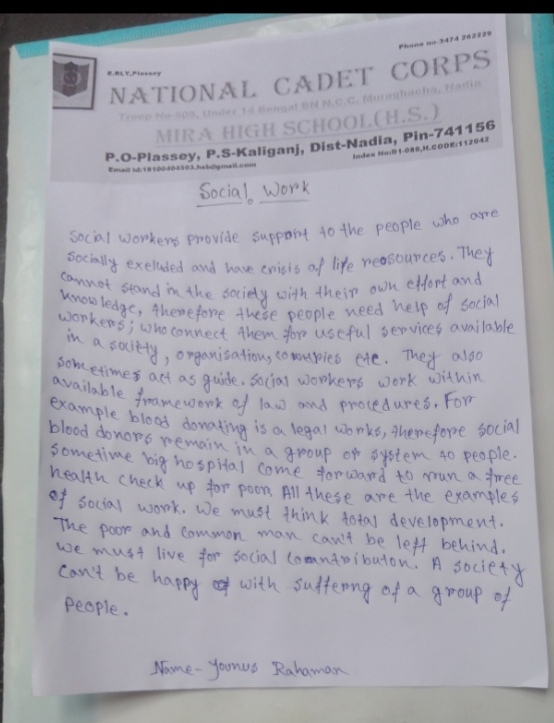 E.RLY.Plassey
Phone no-3474 262229
NATIONAL CADET CORPS
Troop No-505, Under 14 Bengal BN N.C.C, Muraghacha, Nadia
MIRA HIGH SCHOOL(H.S.)
P.O-Plassey, P.S-Kaliganj, Dist-Nadia, Pin-741156
Index No:01-080,H.CODE:112042
Social Work
Social workers provide support to the people who are
socially exeluded and have crisis of life reosources. They
cannot stand in the society with their own effort and
knowledge, therefore these people need help of social
workers; who connect them for useful services available
in a society, organisation, countries etc. They also
sometimes act as guide. Social workers work within
available framework of law and procedures. For
example blood donating is a legal works, therefore social
blood donors remain in a group or system to people.
Sometime big hospital come forward to run a free
health check up for poor. All these are the examples
of social work. We must think total development.
The poor and common man can't be left behind.
We must live for social
A society
can't be happy with sufferng of a group of
people.
Name- Younus Rahaman